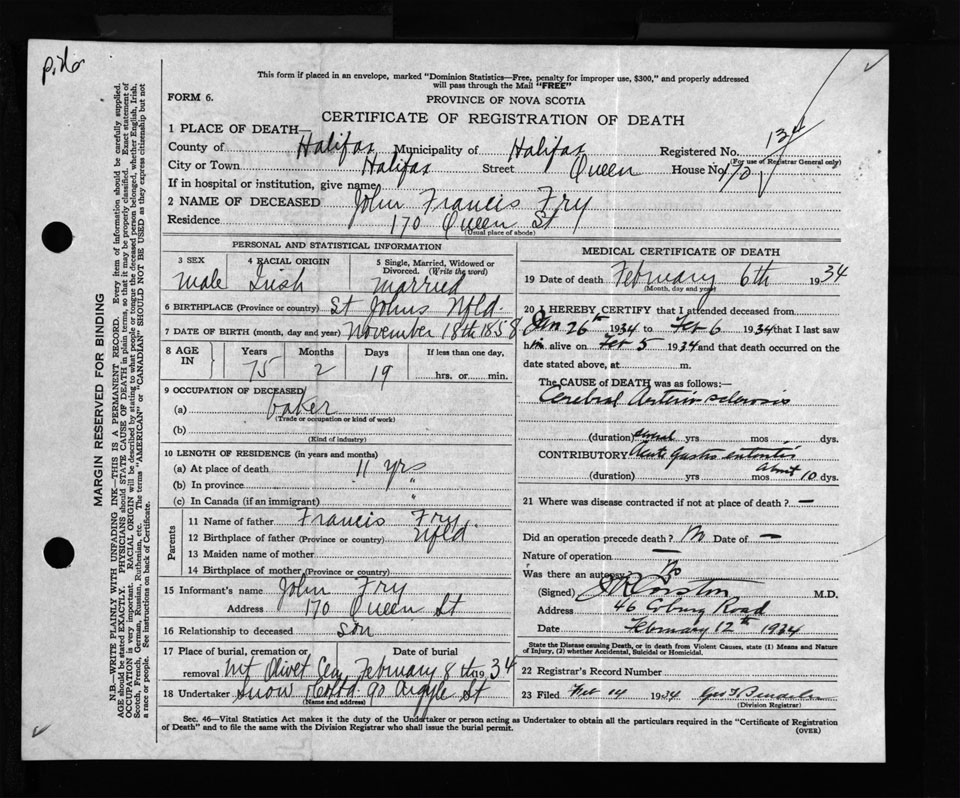 p. 26
This form if placed in an envelope, marked "Dominion Statistics—Free, penalty for improper use, $300," and properly addressed
will pass through the Mail "FREE"
FORM 6.
PROVINCE OF NOVA SCOTIA
CERTIFICATE OF REGISTRATION OF DEATH
1 PLACE OF DEATH—
County of Halifax Municipality of Halifax Registered No.
(For use of Registrar General only)
City or Town Halifax Street Queen House No. 170
If in hospital or institution, give name
2 NAME OF DECEASED John Francis Fry
Residence 170 Queen St
(Usual place of abode)
PERSONAL AND STATISTICAL INFORMATION
3 SEX male
4 RACIAL ORIGIN Irish
5 Single, Married, Widowed or Divorced. (Write the word) married
6 BIRTHPLACE (Province or country) St Johns Nfld.
7 DATE OF BIRTH (month, day and year) November 18th 1858
8 AGE IN Years Months Days If less than one day,
75 2 19 hrs. or min.
9 OCCUPATION OF DECEASED
(a) baker
(Trade or occupation or kind of work)
(b)
(Kind of industry)
10 LENGTH OF RESIDENCE (in years and months)
(a) At place of death 11 yrs
(b) In province "
(c) In Canada (if an immigrant) "
Parents
11 Name of father Francis Fry.
12 Birthplace of father (Province or country) Nfld
13 Maiden name of mother
14 Birthplace of mother (Province or country)
15 Informant's name John Fry
Address 170 Queen St
16 Relationship to deceased son
17 Place of burial, cremation or removal Date of burial
Mt Olivet Cem February 8th 1934
18 Undertaker Snow & Co Ltd 90 Argyle St
(Name and address)
MEDICAL CERTIFICATE OF DEATH
19 Date of death February 6th 1934
(Month, day and year)
20 I HEREBY CERTIFY that I attended deceased from
Jan 26th 1934 to Feb 6 1934 that I last saw
him alive on Feb 5 1934 and that death occurred on the
date stated above, at m.
The CAUSE OF DEATH was as follows:
Cerebral Arterio sclerosis
(duration) several yrs mos dys.
CONTRIBUTORY Acute Gastro enteritis
(duration) yrs mos about 10 dys.
21 Where was disease contracted if not at place of death? —
Did an operation precede death? No Date of —
Nature of operation —
Was there an autopsy? No
(Signed) Corston M.D.
Address 46 Coburg Road
Date February 12th 1934
State the Disease causing Death, or in death from Violent Causes, state (1) Means and Nature
of Injury, (2) whether Accidental, Suicidal or Homicidal.
22 Registrar's Record Number
23 Filed Feb 14 1934
(Division Registrar)
Sec. 46—Vital Statistics Act makes it the duty of the Undertaker or person acting as Undertaker to obtain all the particulars required in the "Certificate of Registration
of Death" and to file the same with the Division Registrar who shall issue the burial permit.
(OVER)
MARGIN RESERVED FOR BINDING
N.B.—WRITE PLAINLY WITH UNFADING INK—THIS IS A PERMANENT RECORD. Every item of information should be carefully supplied.
AGE should be stated EXACTLY. PHYSICIANS should STATE CAUSE OF DEATH in plain terms, so that it may be properly classified. Exact statement of
OCCUPATION is very important. RACIAL ORIGIN will be described by stating to what people or tongue the deceased person belonged, whether English, Irish,
Scotch, French, German, Russian, Ruthenian, etc. The terms "AMERICAN" or "CANADIAN" SHOULD NOT BE USED as they express citizenship but not
a race or people. See instructions on back of Certificate.